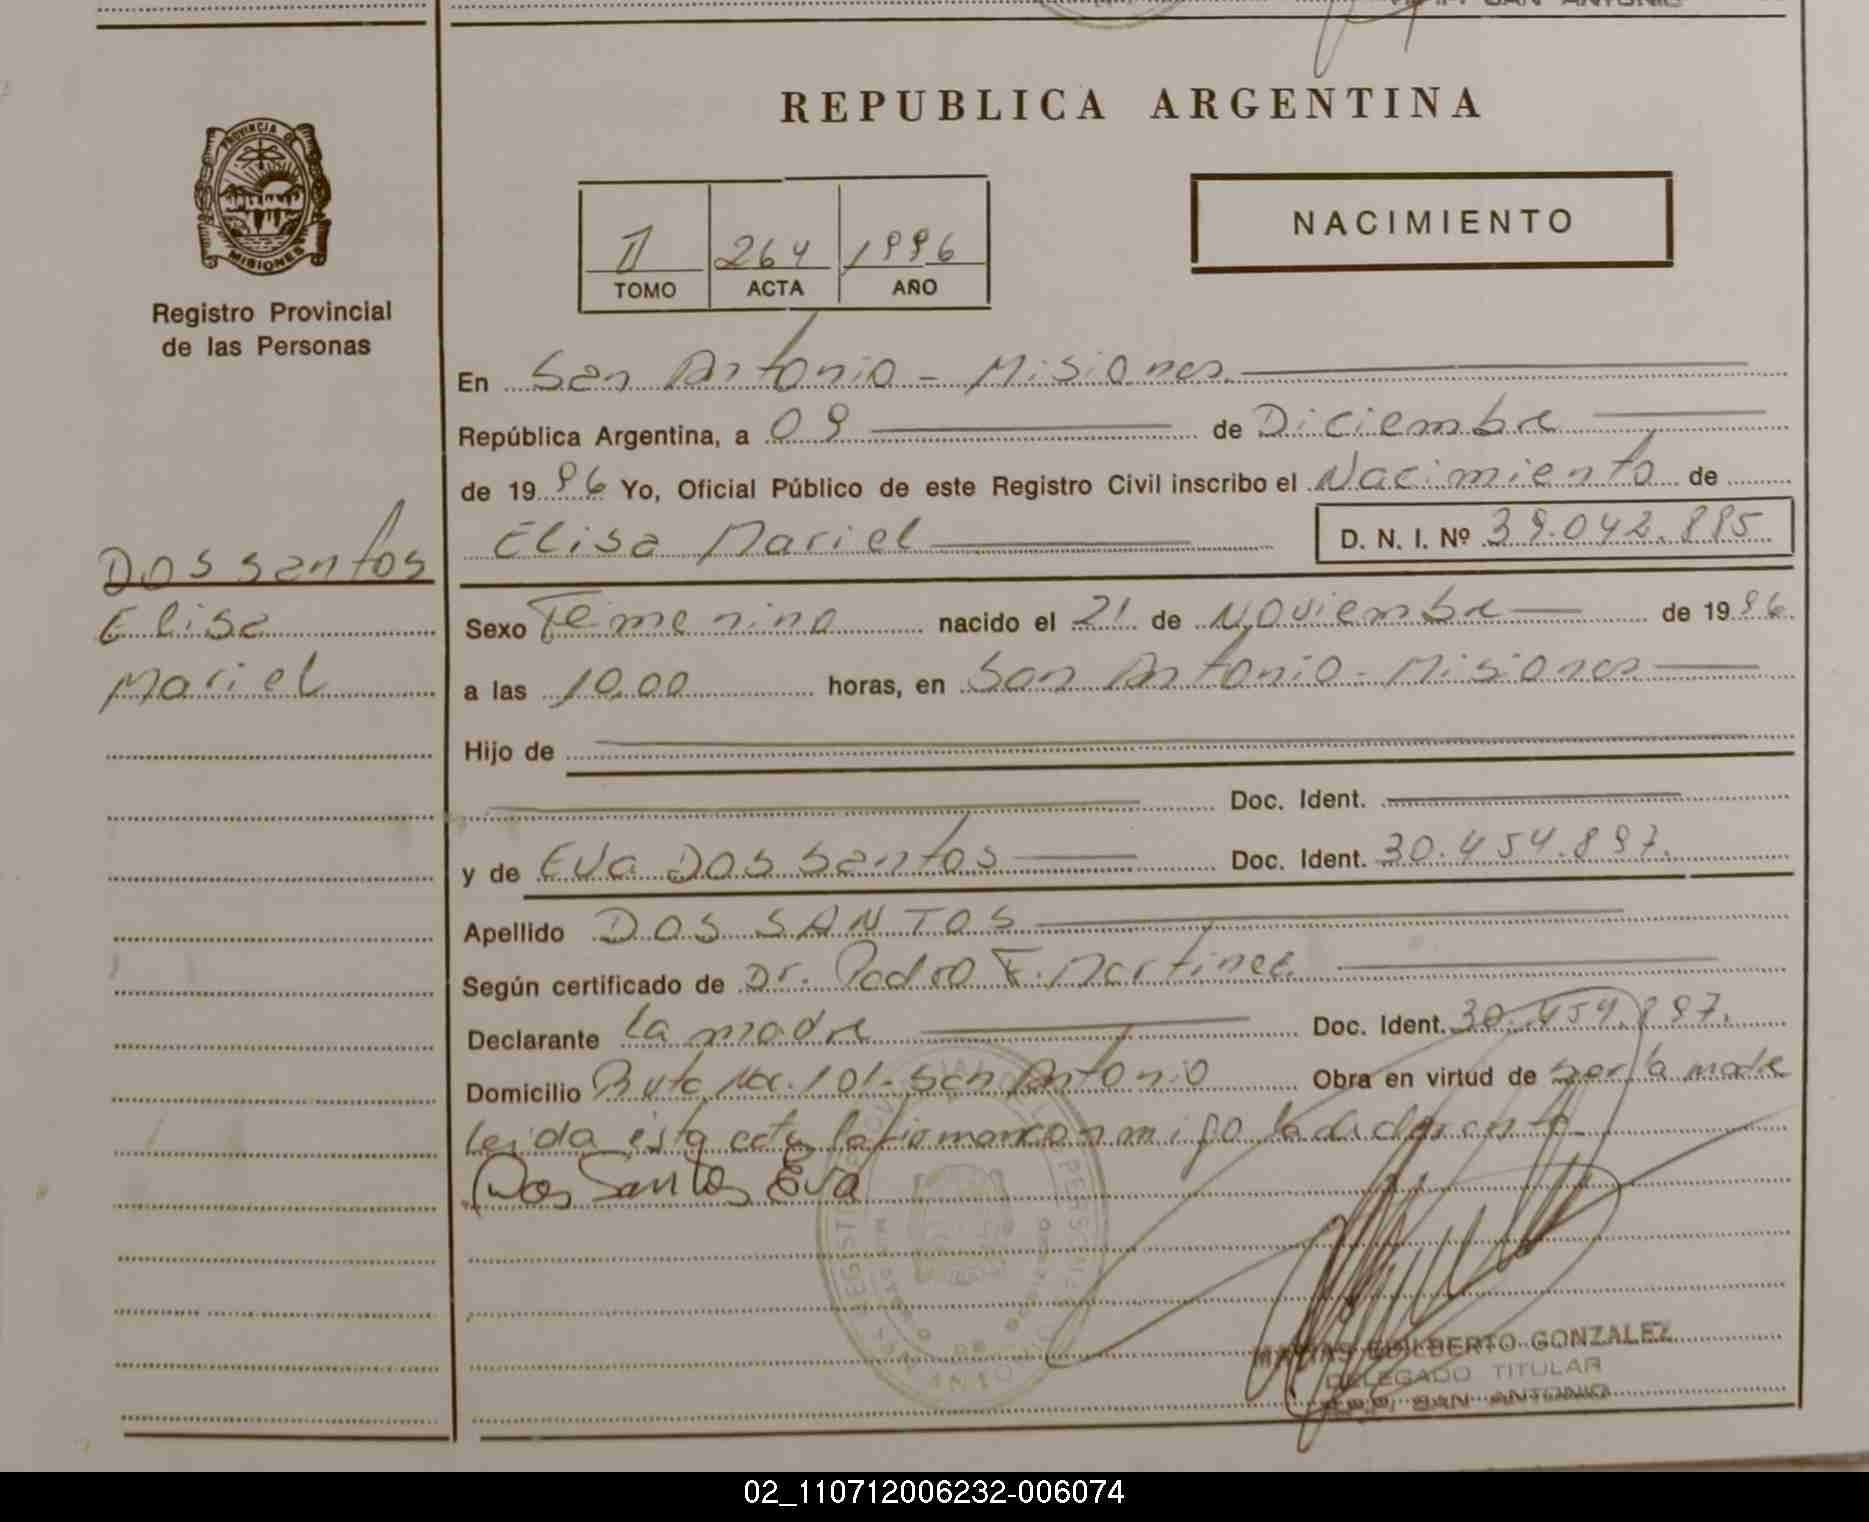 REPUBLICA ARGENTINA
PROVINCIA DE
MISIONES
Registro Provincial
de las Personas
II 264 1996
TOMO ACTA AÑO
NACIMIENTO
En San Antonio - Misiones
República Argentina, a 09 de Diciembre
de 1996 Yo, Oficial Público de este Registro Civil inscribo el Nacimiento de
Elisa Mariel D. N. I. Nº 39.042.895
Dos santos
Elisa
Mariel
Sexo Femenino nacido el 21 de Noviembre de 1996.
a las 10,00 horas, en San Antonio - Misiones
Hijo de
Doc. Ident.
y de Eva Dos Santos Doc. Ident. 30.454.897.
Apellido DOS SANTOS
Según certificado de Dr. Pedro F. Martinez
Declarante la madre Doc. Ident. 30.454.897.
Domicilio Ruta Nac. 101 - San Antonio Obra en virtud de ser la madre
Leida esta acta la firman conmigo la declarante
Dos Santos Eva
MATIAS EDILBERTO GONZALEZ
DELEGADO TITULAR
SAN ANTONIO
02_110712006232-006074